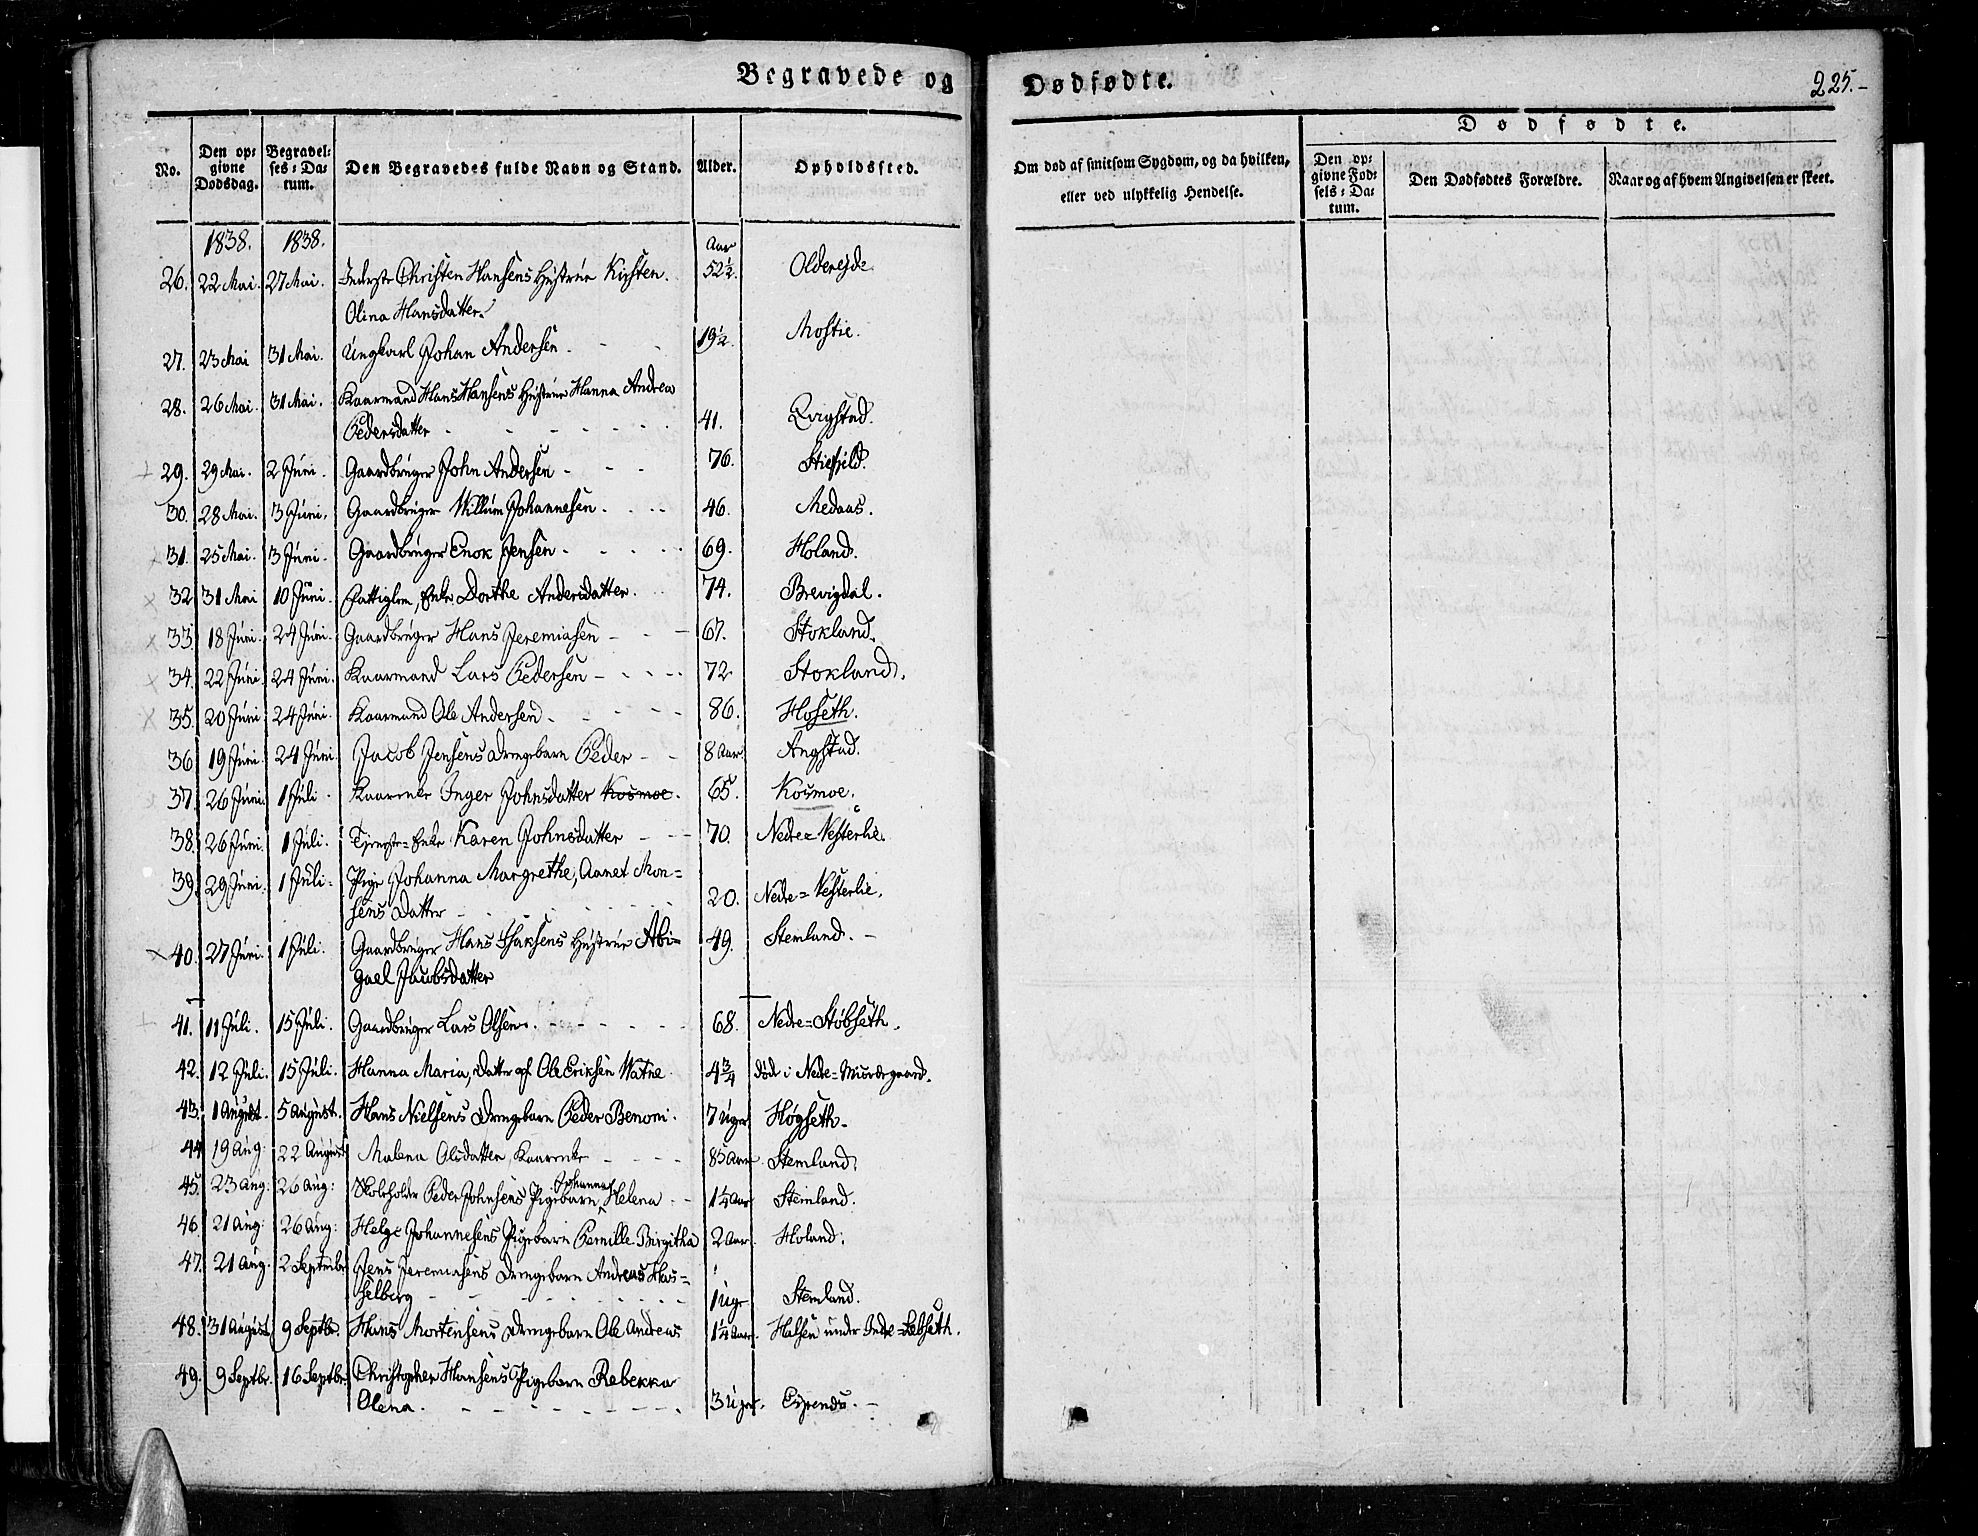 Begravede og
No. Den opgivne Dødsdag. Begravelses-Datum. Den Begravedes fulde Navn og Stand. Alder. Opholdssted.
1838. 1838. Aar
26. 22 Mai. 27 Mai. Inderste Christen Hansens Hustrue Kirsten 52½. Oldereide
Olina Hansdatter.
27. 23 Mai 31 Mai. Ungkarl Johan Andersen. 19½. Mostie.
28. 26 Mai. 31 Mai. Kaarmand Hans Hansens Hustrue Hanna Andrea
Pedersdatter 41. Qvigstad.
29. 29 Mai. 2 Juni. Gaardbruger John Andersen 76. Stiefjeld.
30. 28 Mai. 3 Juni. Gaardbruger Willum Johannesen. 46. Medaas.
31. 25 Mai. 3 Juni. Gaardbruger Enok Jensen 69. Holand.
32 31 Mai 10 Juni. Fattiglem, Enke Dorthe Andersdatter. 74. Brevigdal.
33. 18 Juni. 24 Juni. Gaardbruger Hans Jeremiasen 67. Stokland.
34. 22 Juni. 24 Juni. Kaarmand Lars Pedersen 72 Stokland.
35. 20 Juni 24 Juni. Kaarmand Ole Andersen 86. Hoseth.
36 19 Juni. 24 Juni Jacob Jensens Drengebarn Peder 8 Aar Angstad.
37. 26 Juni. 1 Juli. Kaarenke Inger Johnsdatter Kosmoe. 65. Kosmoe.
38. 26 Juni. 1 Juli. Tjeneste-Enke Karen Johnsdatter 70. Nedre=Vesterlie.
39. 29 Juni. 1 Juli. Pige Johanna Margrethe, Aanet Mon=
sens Datter 20. Nedre=Vesterlie.
40. 27 Juni. 1 Juli. Gaardbruger Hans Isaksens Hustrue Abi= 49. Stemland.
gael Jacobsdatter
41. 11 Juli. 15 Juli. Gaardbruger Lars Olsen. 68. Nedre=Støbseth.
42. 12 Juli. 15 Juli. Hanna Maria, Datter af Ole Eriksen Watne 4¾ død i Nedre=Misværgaard.
43. 1 August. 5 August. Hans Nielsens Drengebarn Peder Benoni. 7 Uger Høgseth.
44 19 Aug: 22 August Malena Olsdatter, Kaarenke 85 Aar Stemland.
45. 23 Aug: 26 Aug: Skoleholder Peder Johnsens Pigebarn Johanna Helena 1¼ Aar Stemland.
46. 21 Aug: 26 Aug: Helge Johannesens Pigebarn Pernille Birgitha 2 Aar. Holand.
47. 21 Aug. 2 September Jens Jeremiasens Drengebarn Andreas Has=
selberg 1 Uge Stemland.
48. 31 August 9 Septbr. Hans Mortensens Drengebarn Ole Andreas 1¼ Aar. Halsen under Indre=Løbseth.
49. 9 Septbr. 16 Septbr. Christopher Hansens Pigebarn Rebekka
Olena. 3 Uger. Espenæs.
Dødfødte. 225.
Om død af smitsom Sygdom, og da hvilken,
eller ved ulykkelig Hendelse.
Dødfødte.
Den opgivne Fødsels-Datum. Den Dødfødtes Forældre. Naar og af hvem Angivelsen er skeet.